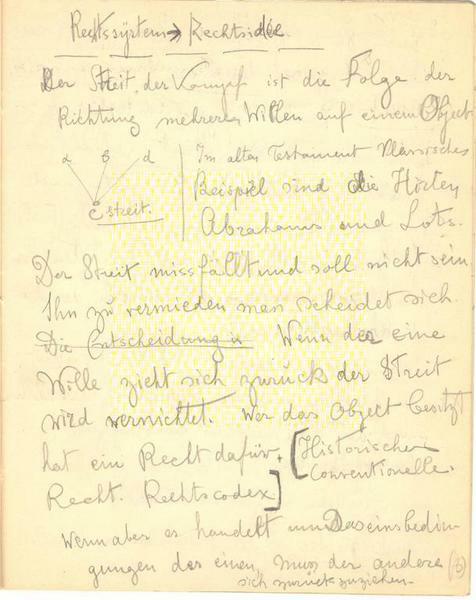 Rechtssystem → Rechtsidee
Der Streit, der Kampf ist die Folge der
Richtung mehrerer Willen auf einem Object
a b d
c streit.
Im alten Testament klassisches
Beispiel sind die Hirten
Abrahams und Lots.
Der Streit missfällt und soll nicht sein.
Ihn zu vermieden man scheidet sich.
Die Entscheidung is Wenn der eine
Wille zieht sich zurück der Streit
wird vernichtet. Wer das Object besitzt
hat ein Recht dafür. [Historischer
Conventionelle.
Recht. Rechtscodex]
Wenn aber es handelt um Daseinsbedin-
gungen des einen, muss der andere (b)
sich zurückzuziehen